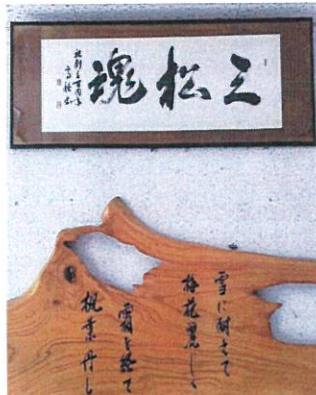 三松魂
雪に耐えて
梅花麗しく
霜を経て
楓葉丹し